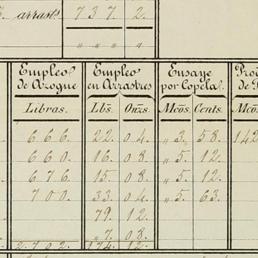 arrast.s 7 3 7. 2.
" " " "
Empleo de Azogue Empleo en Arrastres Ensaye por Copela
Libras. Lbs. Onzs. Mcos. Cents. Mcos.
6 6 6. 22. 04. " 3. 58. 142
6 6 0. 16. 08. " 5. 12.
6 7 6. 15. 08. " 5. 12.
7 0 0. 33. 04. " 5. 63.
79. 12.
" 7. 08.
2702. 174. 12.